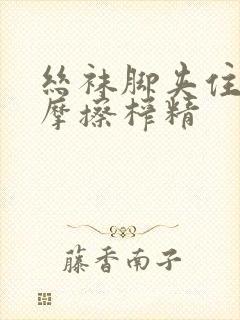 丝袜脚夹住
摩擦榨精
藤香南子